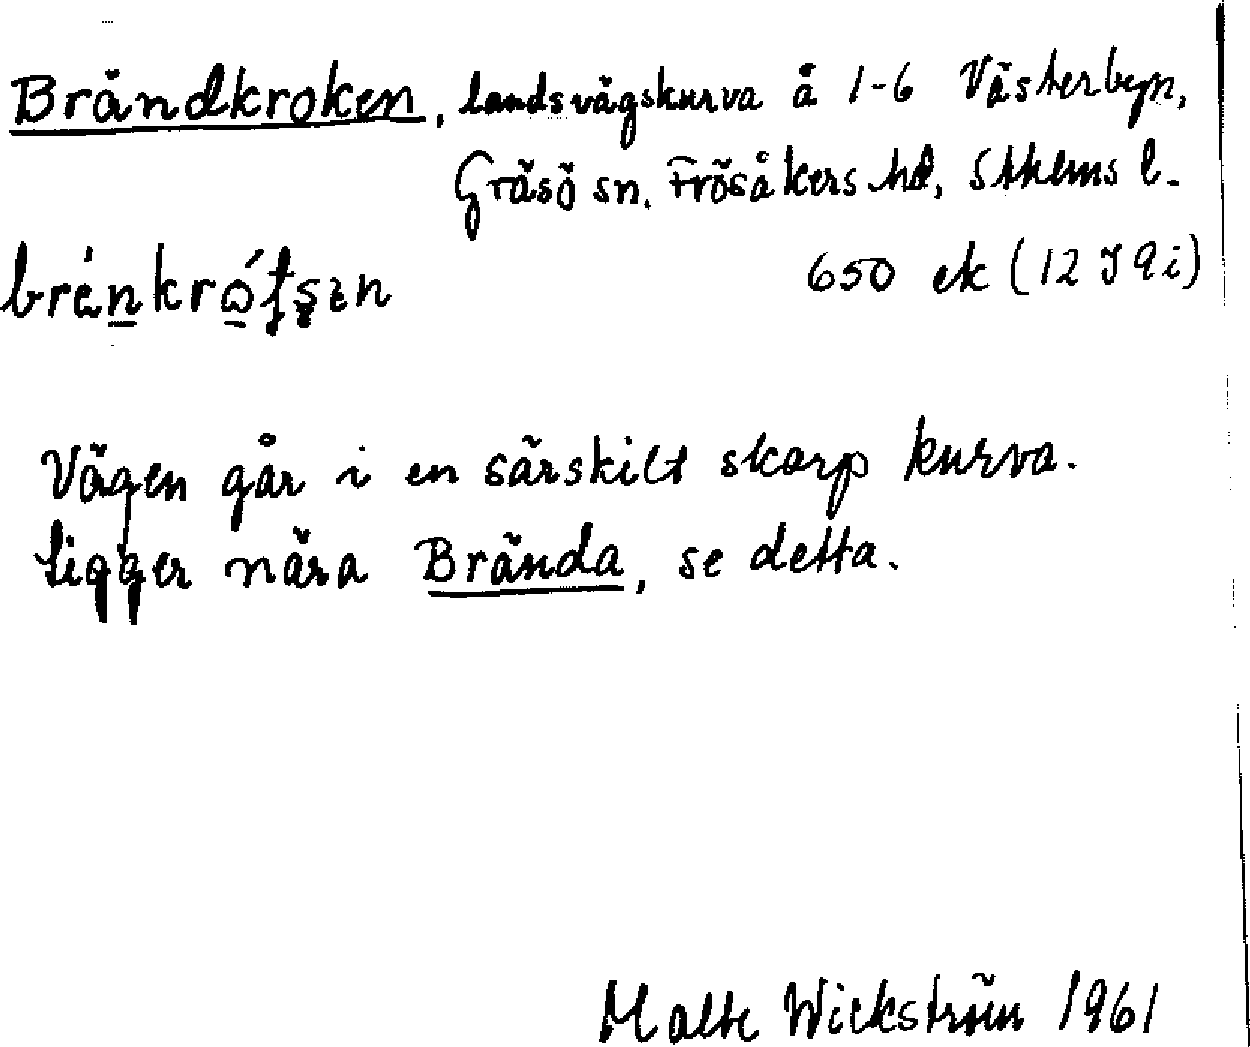 Brändkroken, landsvägskurva å 1-6 Västerbyn,
Gräsö sn. Frösåkers hd, Sthlms l.
650 ek (12 I 9 i)
Vägen går i en särskilt skarp kurva.
Ligger nära Brända, se detta.
Malte Wickström 1961